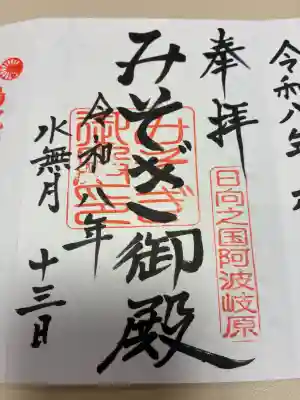 奉拝
日向之国阿波岐原
みそぎ御殿
みそぎ
令和八年
水無月
十三日
令和八年